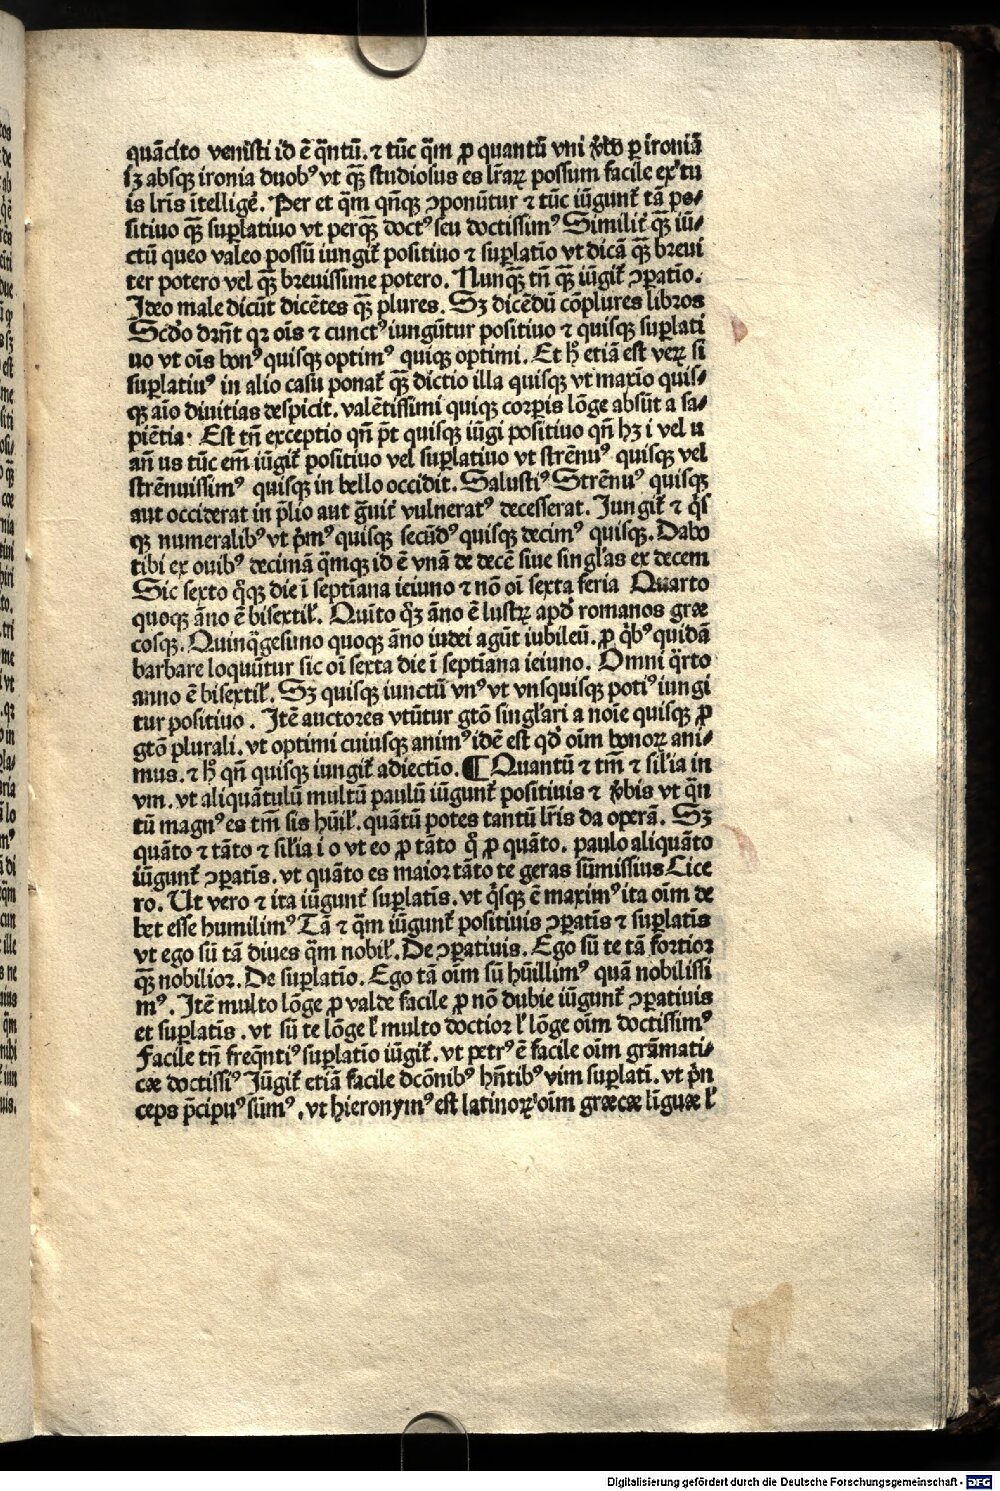 quācito venisti id ē q̄ntū. ⁊ tūc q̄m ꝓ quantū vni ꝟbo ꝑ ironiā
sꝫ absqꝫ ironia duobꝰ vt qꝫ̄ studiosus es lr̄aꝝ possum facile ex tu
is lr̄is ītelligē. Per et q̄m qn̄qꝫ ↄponūtur ⁊ tūc iūgunt᷑ tā po⸗
sitiuo qꝫ̄ suꝑlatiuo vt perqꝫ̄ doctꝰ seu doctissimꝰ Similit᷑ qꝫ̄ iū⸗
ctū queo valeo possū iungit᷑ positiuo ⁊ suꝑlatīo vt dicā qꝫ̄ breui
ter potero vel qꝫ̄ breuissime potero. Nunqꝫ̄ tn̄ qꝫ̄ iūgit᷑ ↄꝑatīo.
Ideo male dicūt dicētes qꝫ̄ plures. Sꝫ dicēdū cōplures libros
Scd̄o drn̄t qꝛ oīs ⁊ cunctꝰ iungūtur positiuo ⁊ quisqꝫ suꝑlati
uo vt oīs bonꝰ quisqꝫ optimꝰ quiqꝫ optimi. Et hͦ etiā est veꝝ si
suꝑlatiuꝰ in alio casu ponat᷑ qꝫ̄ dictio illa quisqꝫ vt maxīo quis⸗
qꝫ aīo diuitias despicit. valētissimi quiqꝫ corꝑis lōge absūt a sa⸗
piētia. Est tn̄ exceptio qn̄ pōt quisqꝫ iūgi positiuo qn̄ hꝫ i vel u
an̄ us tūc em̄ iūgit᷑ positiuo vel suꝑlatiuo vt strēnuꝰ quisqꝫ vel
strēnuissimꝰ quisqꝫ in bello occidit. Salustiꝰ Strēnuꝰ quisqꝫ
aut occiderat in p̄lio aut g̃uit᷑ vulneratꝰ decesserat. Jungit᷑ ⁊ qͥs
qꝫ numeralibꝰ vt p̄mꝰ quisqꝫ secūdꝰ quisqꝫ decimꝰ quisqꝫ. Dabo
tibi ex ouibꝰ decimā q̄mqꝫ id ē vnā de decē siue singl'as ex decem
Sic sexto qͦqꝫ die ī septīana ieiuno ⁊ nō oī sexta feria Quarto
quoqꝫ āno ē bisextil'. Quīto qͦꝫ āno ē lustꝝ apd̄ romanos græ
cosqꝫ. Quinqͣgesimo quoqꝫ āno iudei agūt iubileū. ꝓ qͥbꝰ quidā
barbare loquūtur sic oī sexta die ī septīana ieiuno. Omni qͣrto
anno ē bisextil'. Sꝫ quisqꝫ iunctū vnꝰ vt vnsquisqꝫ potiꝰ iungi
tur positiuo. Itē auctores vtūtur gtō singl'ari a noīe quisqꝫ ꝓ
gtō plurali. vt optimi cuiusqꝫ animꝰ idē est qd̄ oīm bonoꝝ ani⸗
mus. ⁊ hͦ qn̄ quisqꝫ iungit᷑ adiectīo. ¶ Quantū ⁊ tm̄ ⁊ sil'ia in
vm. vt aliquātulū multū paulū iūgunt᷑ positiuis ⁊ ꝟbis vt q̄n
tū magnꝰ es tm̄ sis hūil'. quātū potes tantū lr̄is da operā. Sꝫ
quāto ⁊ tāto ⁊ sil'ia i o vt eo ꝓ tāto qͦ ꝓ quāto. paulo aliquāto
iūgunt᷑ ↄꝑatīs. vt quāto es maior tāto te geras sūmissius Cice
ro. Ut vero ⁊ ita iūgunt᷑ suꝑlatīs. vt qͥsqꝫ ē maximꝰ ita oīm de
bet esse humilimꝰ Tā ⁊ q̄m iūgunt᷑ positiuis ↄꝑatīs ⁊ suꝑlatīs
vt ego sū tā diues q̄m nobil'. De ↄꝑatiuis. Ego sū te tā fortior
qꝫ̄ nobilior. De suꝑlatīo. Ego tā oīm sū hūillimꝰ quā nobilissi
mꝰ. Itē multo lōge ꝓ valde facile ꝓ nō dubie iūgunt᷑ ↄꝑatiuis
et suꝑlatīs. vt sū te lōge l' multo doctior l' lōge oīm doctissimꝰ
Facile tn̄ freq̄ntiꝰ suꝑlatīo iūgit᷑. vt petrꝰ ē facile oīm grāmati⸗
cæ doctissiꝰ Jūgit᷑ etiā facile dcōnibꝰ hn̄tibꝰ vim suꝑlatī. vt p̄n
ceps p̄cipuꝰ sūmꝰ. vt hieronymꝰ est latinoꝝ oīm græcæ līguæ l'
Digitalisierung gefördert durch die Deutsche Forschungsgemeinschaft - DFG